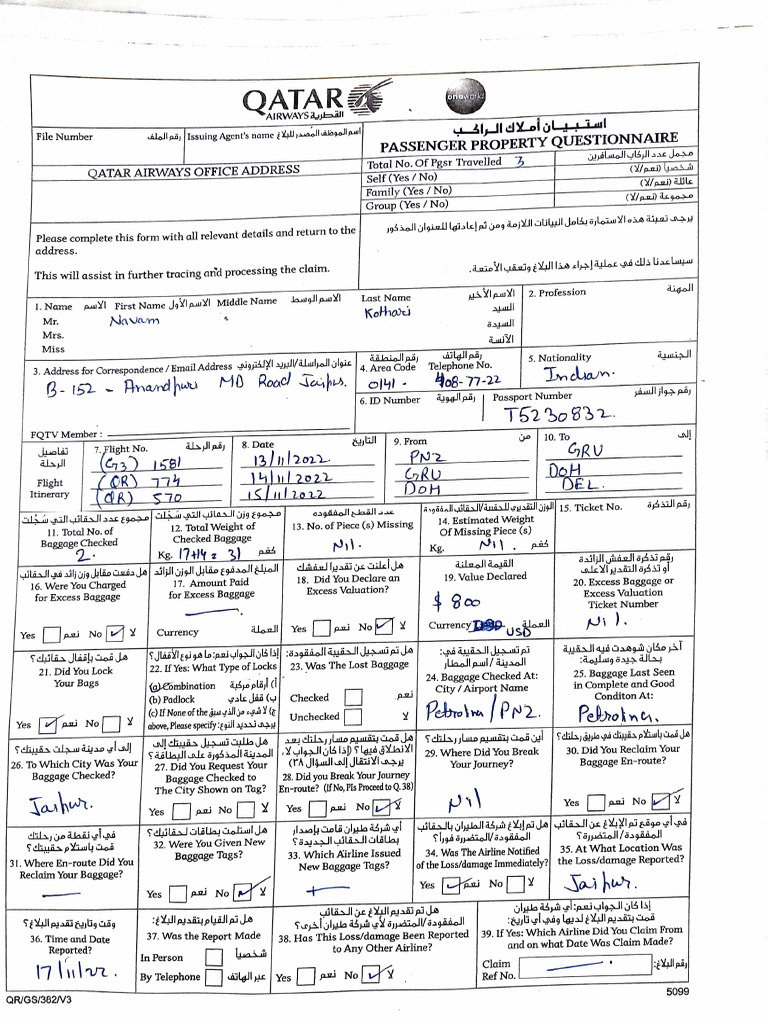 QATAR
AIRWAYS القطرية
oneworld
File Number رقم الملف
Issuing Agent's name اسم الموظف المصدر للبلاغ
استبيان أملاك الراكب
PASSENGER PROPERTY QUESTIONNAIRE
QATAR AIRWAYS OFFICE ADDRESS
Total No. Of Pgsr Travelled 3 مجمل عدد الركاب المسافرين
Self (Yes / No) شخصياً (نعم/لا)
Family (Yes / No) عائلة (نعم/لا)
Group (Yes / No) مجموعة (نعم/لا)
Please complete this form with all relevant details and return to the address.
يرجى تعبئة هذه الاستمارة بكامل البيانات اللازمة ومن ثم إعادتها للعنوان المذكور
This will assist in further tracing and processing the claim.
سيساعدنا ذلك في عملية إجراء هذا البلاغ وتعقب الأمتعة.
1. Name الاسم First Name الاسم الأول Middle Name الاسم الوسط Last Name الاسم الأخير
Mr. Navam Kothari السيد
Mrs. السيدة
Miss الآنسة
2. Profession المهنة
3. Address for Correspondence / Email Address عنوان المراسلة/البريد الإلكتروني
B-152 - Anandpuri MD Road Jaipur.
4. Area Code رقم المنطقة Telephone No. رقم الهاتف
0141 - 408-77-22
5. Nationality الجنسية
Indian.
6. ID Number رقم الهوية Passport Number رقم جواز السفر
T5230832.
FQTV Member :
تفاصيل الرحلة
Flight Itinerary
7. Flight No. رقم الرحلة
(G3) 1581
(QR) 774
(QR) 570
8. Date التاريخ
13/11/2022
14/11/2022
15/11/2022
9. From من
PNZ
GRU
DOH
10. To إلى
GRU
DOH
DEL.
مجموع عدد الحقائب التي سُجّلت
11. Total No. of Baggage Checked
2.
مجموع وزن الحقائب التي سُجّلت
12. Total Weight of Checked Baggage
Kg. 17+14 = 31 كغم
عدد القطع المفقودة
13. No. of Piece (s) Missing
Nil.
الوزن التقديري للحقيبة/الحقائب المفقودة
14. Estimated Weight Of Missing Piece (s)
Kg. Nil. كغم
15. Ticket No. رقم التذكرة
هل دفعت مقابل وزن زائد في الحقائب
16. Were You Charged for Excess Baggage
Yes نعم No ✓ لا
المبلغ المدفوع مقابل الوزن الزائد
17. Amount Paid for Excess Baggage
Currency العملة
هل أعلنت عن تقدير العفشك
18. Did You Declare an Excess Valuation?
Yes نعم No ✓ لا
القيمة المعلنة
19. Value Declared
$ 800
Currency USD العملة
رقم تذكرة العفش الزائدة أو تذكرة التقدير الأعلى
20. Excess Baggage or Excess Valuation Ticket Number
Nil.
هل قمت بإقفال حقائبك؟
21. Did You Lock Your Bags
Yes ✓ نعم No لا
إذا كان الجواب نعم: ما هو نوع الأقفال؟
22. If Yes: What Type of Locks
(a) Combination أ) أرقام مركبة
(b) Padlock ب) قفل عادي
(c) If None of the above, Please specify: ج) لا شيء من الذي سبق يرجى تحديد النوع:
هل تم تسجيل الحقيبة المفقودة:
23. Was The Lost Baggage
Checked نعم
Unchecked لا
تم تسجيل الحقيبة في: المدينة / اسم المطار
24. Baggage Checked At: City / Airport Name
Petrolina/PNZ.
آخر مكان شوهدت فيه الحقيبة بحالة جيدة وسليمة:
25. Baggage Last Seen in Complete and Good Conditon At:
Petrolina.
إلى أي مدينة سجلت حقيبتك؟
26. To Which City Was Your Baggage Checked?
Jaipur.
هل طلبت تسجيل حقيبتك إلى المدينة المذكورة على البطاقة؟
27. Did You Request Your Baggage Checked to The City Shown on Tag?
Yes نعم No لا
هل قمت بتقسيم مسار رحلتك بعد الانطلاق فيها؟ (إذا كان الجواب لا، يرجى الانتقال إلى السؤال ٣٨)
28. Did you Break Your Journey En-route? (If No, Pls Proceed to Q. 38)
Yes نعم No ✓ لا
أين قمت بتقسيم مسار رحلتك؟
29. Where Did You Break Your Journey?
Nil
هل قمت باستلام حقيبتك في طريق رحلتك؟
30. Did You Reclaim Your Baggage En-route?
Yes نعم No ✓ لا
في أي نقطة من رحلتك قمت باستلام حقيبتك؟
31. Where En-route Did You Reclaim Your Baggage?
هل استلمت بطاقات لحقائبك؟
32. Were You Given New Baggage Tags?
Yes نعم No ✓ لا
أي شركة طيران قامت بإصدار بطاقات الحقائب الجديدة؟
33. Which Airline Issued New Baggage Tags?
هل تم إبلاغ شركة الطيران بالحقائب المفقودة/المتضررة فوراً؟
34. Was The Airline Notified of the Loss/damage Immediately?
Yes ✓ نعم No لا
في أي موقع تم الإبلاغ عن الحقائب المفقودة / المتضررة؟
35. At What Location Was the Loss/damage Reported?
Jaipur.
وقت وتاريخ تقديم البلاغ؟
36. Time and Date Reported?
17/11/22.
هل تم القيام بتقديم البلاغ:
37. Was the Report Made
In Person شخصياً
By Telephone عبر الهاتف
هل تم تقديم البلاغ عن الحقائب المفقودة/المتضررة لأي شركة طيران أخرى؟
38. Has This Loss/damage Been Reported to Any Other Airline?
Yes نعم No ✓ لا
إذا كان الجواب نعم: أي شركة طيران قمت بتقديم البلاغ لديها وفي أي تاريخ:
39. If Yes: Which Airline Did You Claim From and on what Date Was Claim Made?
Claim Ref No. رقم البلاغ:
QR/GS/382/V3
5099